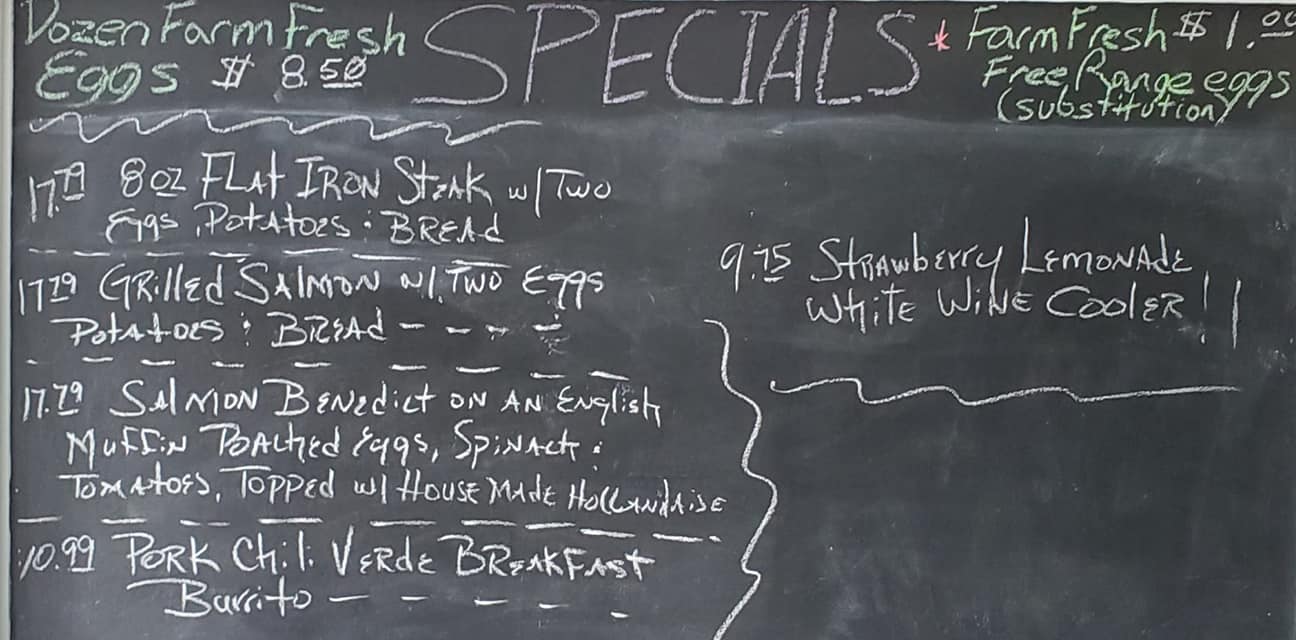 Dozen Farm Fresh
Eggs $ 8.50
SPECIALS
* Farm Fresh $ 1.00
Free Range eggs
(substitution)
17.79 8 oz Flat Iron Steak w/ Two
Eggs, Potatoes : Bread
17.79 Grilled Salmon w/. Two Eggs
Potatoes : Bread - - - -
17.79 Salmon Benedict on an English
Muffin Poached Eggs, Spinach :
Tomatoes, Topped w/ House Made Hollandaise
10.99 Pork Chili Verde Breakfast
Burrito - - - - -
9.75 Strawberry Lemonade
White Wine Cooler!!